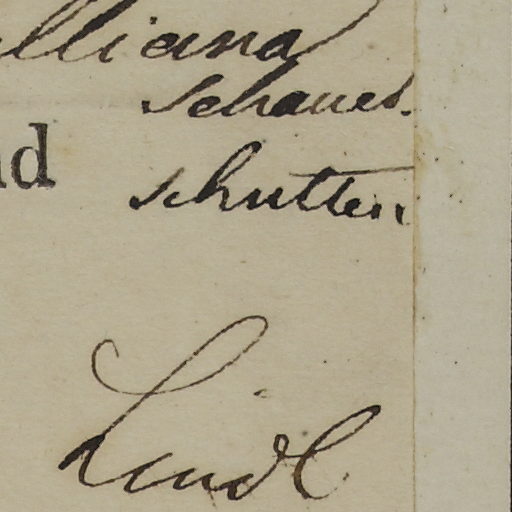 lliana
Schauer.
nd
schutten
Lindl